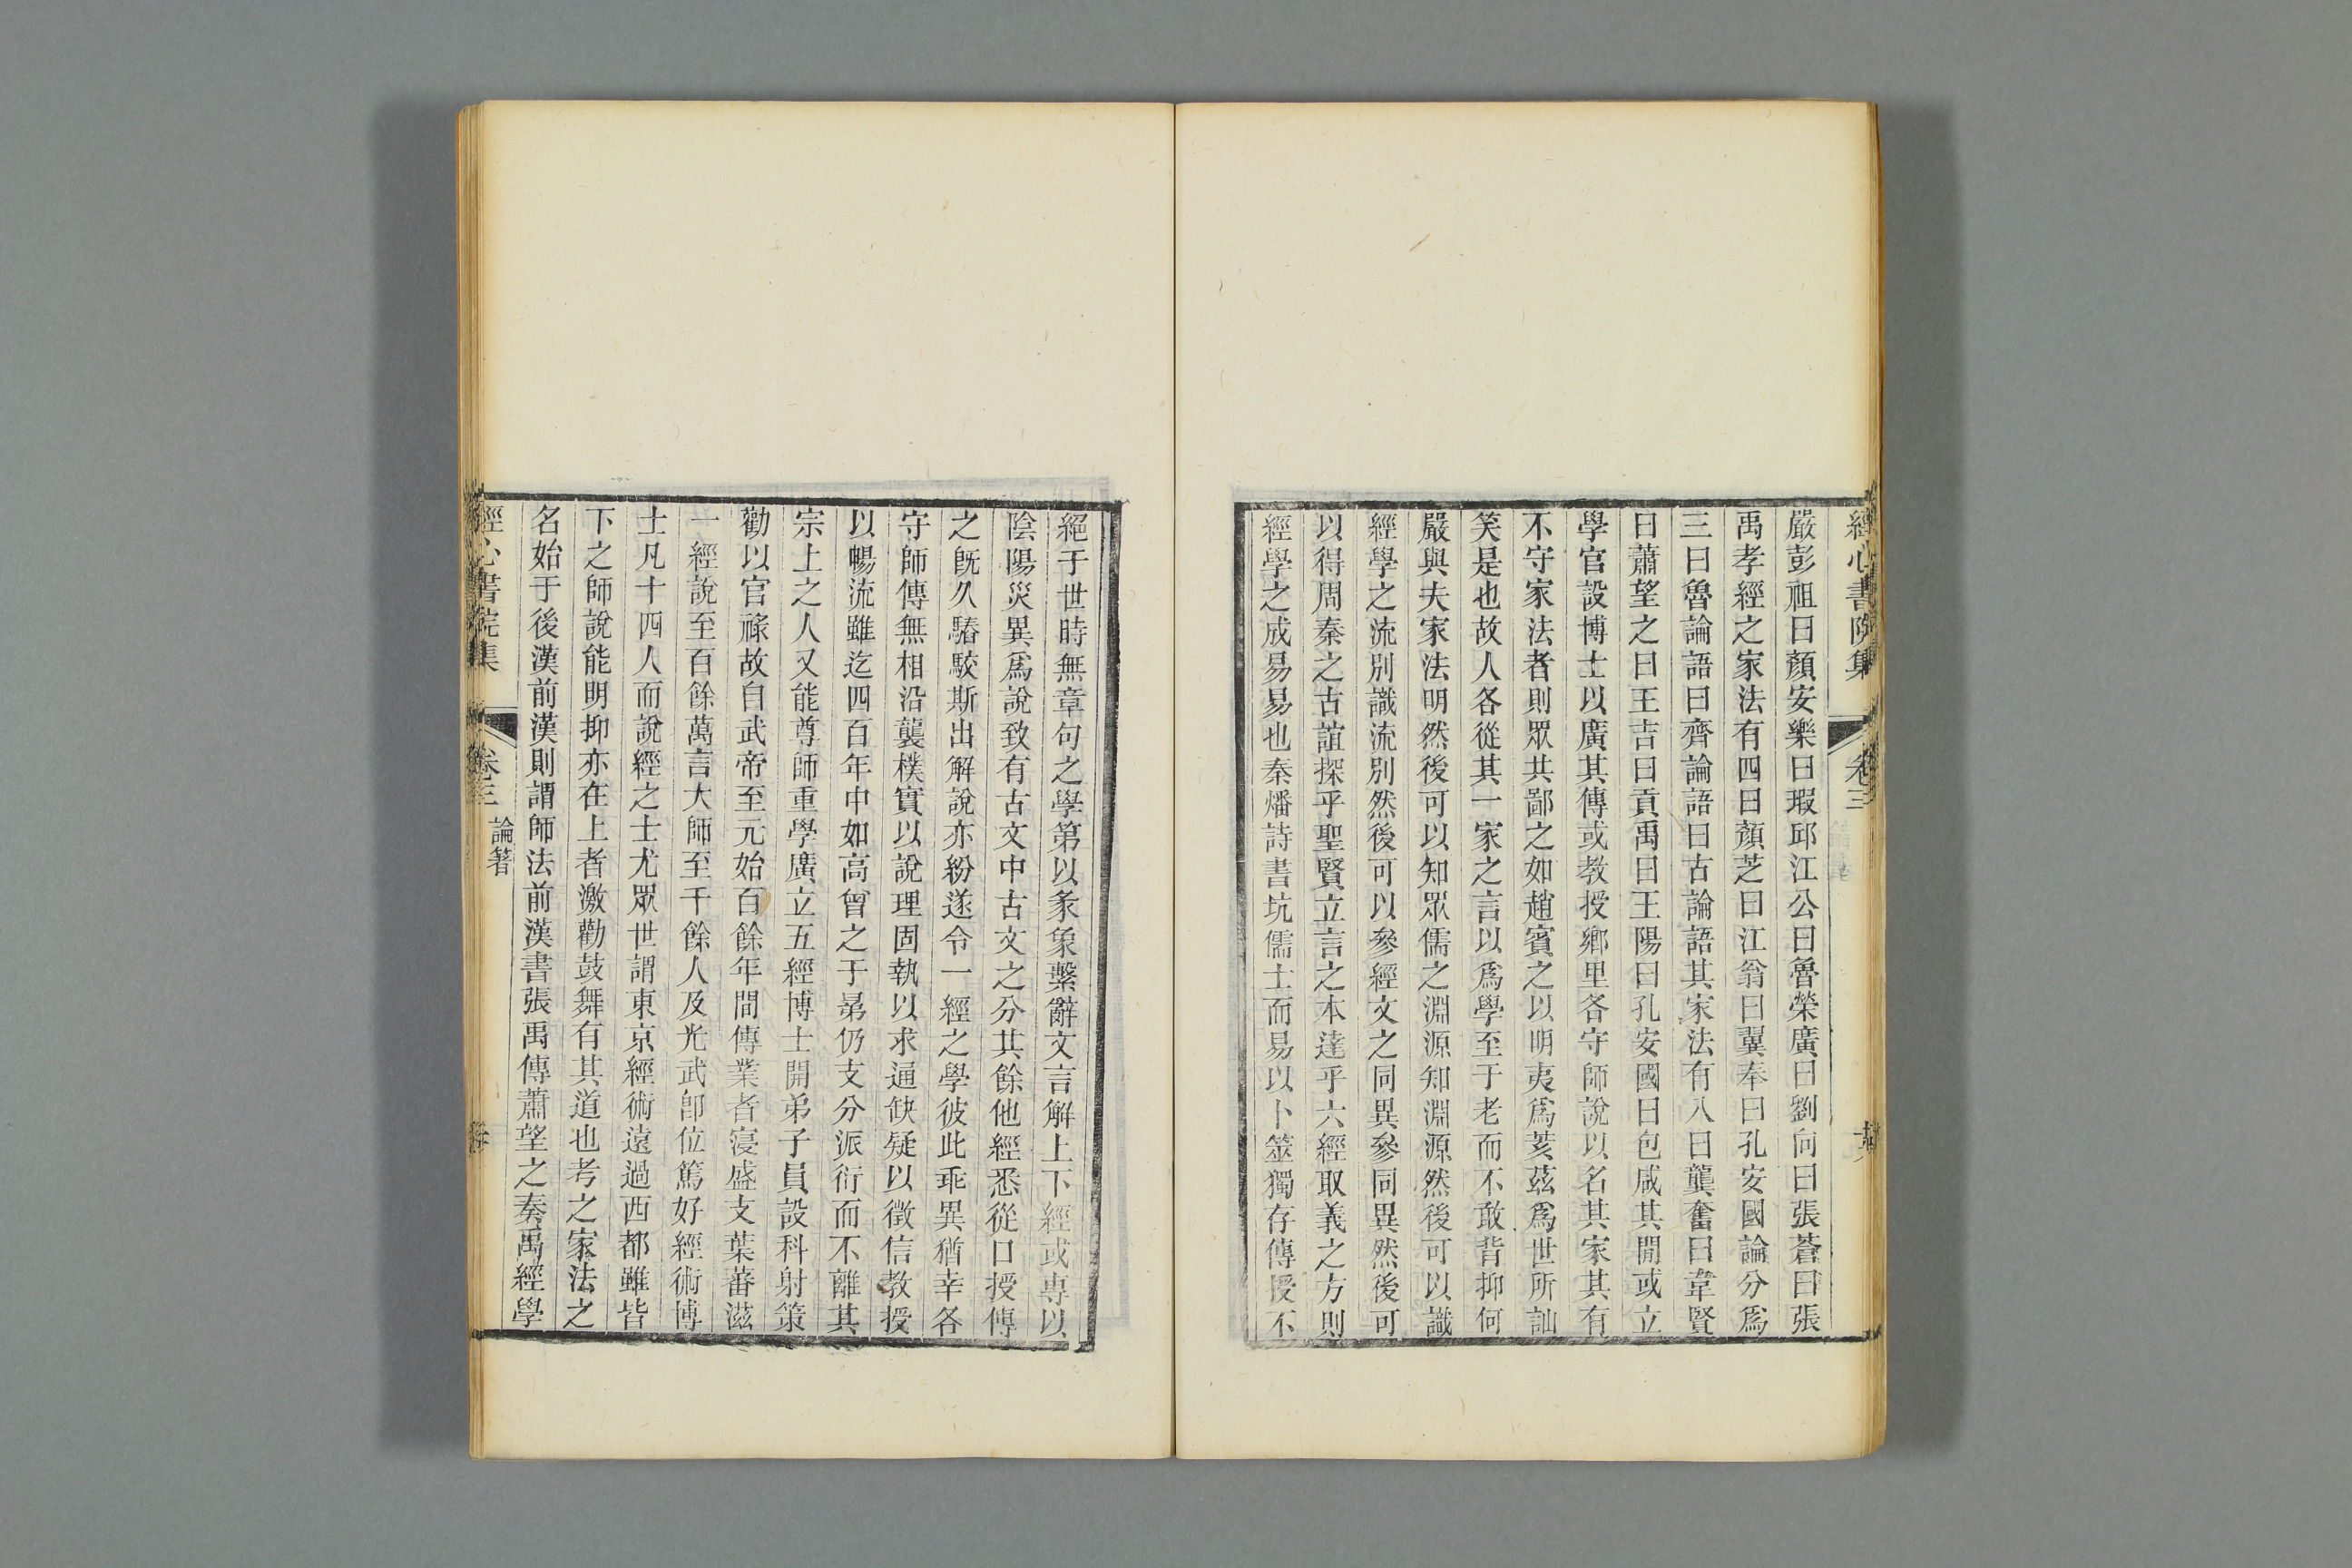 經心書院集 卷三
嚴彭祖曰顏安樂曰瑕邱江公曰魯榮廣曰劉向曰張蒼曰張
禹孝經之家法有四曰顏芝曰江翁曰翼奉曰孔安國論分爲
三曰魯論語曰齊論語曰古論語其家法有八曰龔奮曰韋賢
曰蕭望之曰王吉曰貢禹曰王陽曰孔安國曰包咸其閒或立
學官設博士以廣其傳或教授鄉里各守師說以名其家其有
不守家法者則眾共鄙之如趙賓之以明夷爲荄茲爲世所訕
笑是也故人各從其一家之言以爲學至于老而不敢背抑何
嚴與夫家法明然後可以知眾儒之淵源知淵源然後可以識
經學之流別識流別然後可以參經文之同異參同異然後可
以得周秦之古誼探乎聖賢立言之本達乎六經取義之方則
經學之成易易也秦燔詩書坑儒士而易以卜筮獨存傳授不
絕于世時無章句之學第以彖象繫辭文言解上下經或專以
陰陽災異爲說致有古文中古文之分其餘他經悉從口授傳
之旣久驕駮斯出解說亦紛遂令一經之學彼此乖異猶幸各
守師傳無相沿襲樸實以說理固執以求通缺疑以徵信教授
以暢流雖迄四百年中如高曾之于晜仍支分派衍而不離其
宗上之人又能尊師重學廣立五經博士開弟子員設科射策
勸以官祿故自武帝至元始百餘年間傳業者寖盛支葉蕃滋
一經說至百餘萬言大師至千餘人及光武卽位篤好經術博
士凡十四人而說經之士尤眾世謂東京經術遠過西都雖皆
下之師說能明抑亦在上者激勸鼓舞有其道也考之家法之
名始于後漢前漢則謂師法前漢書張禹傳蕭望之奏禹經學
經心書院集 卷三 論著